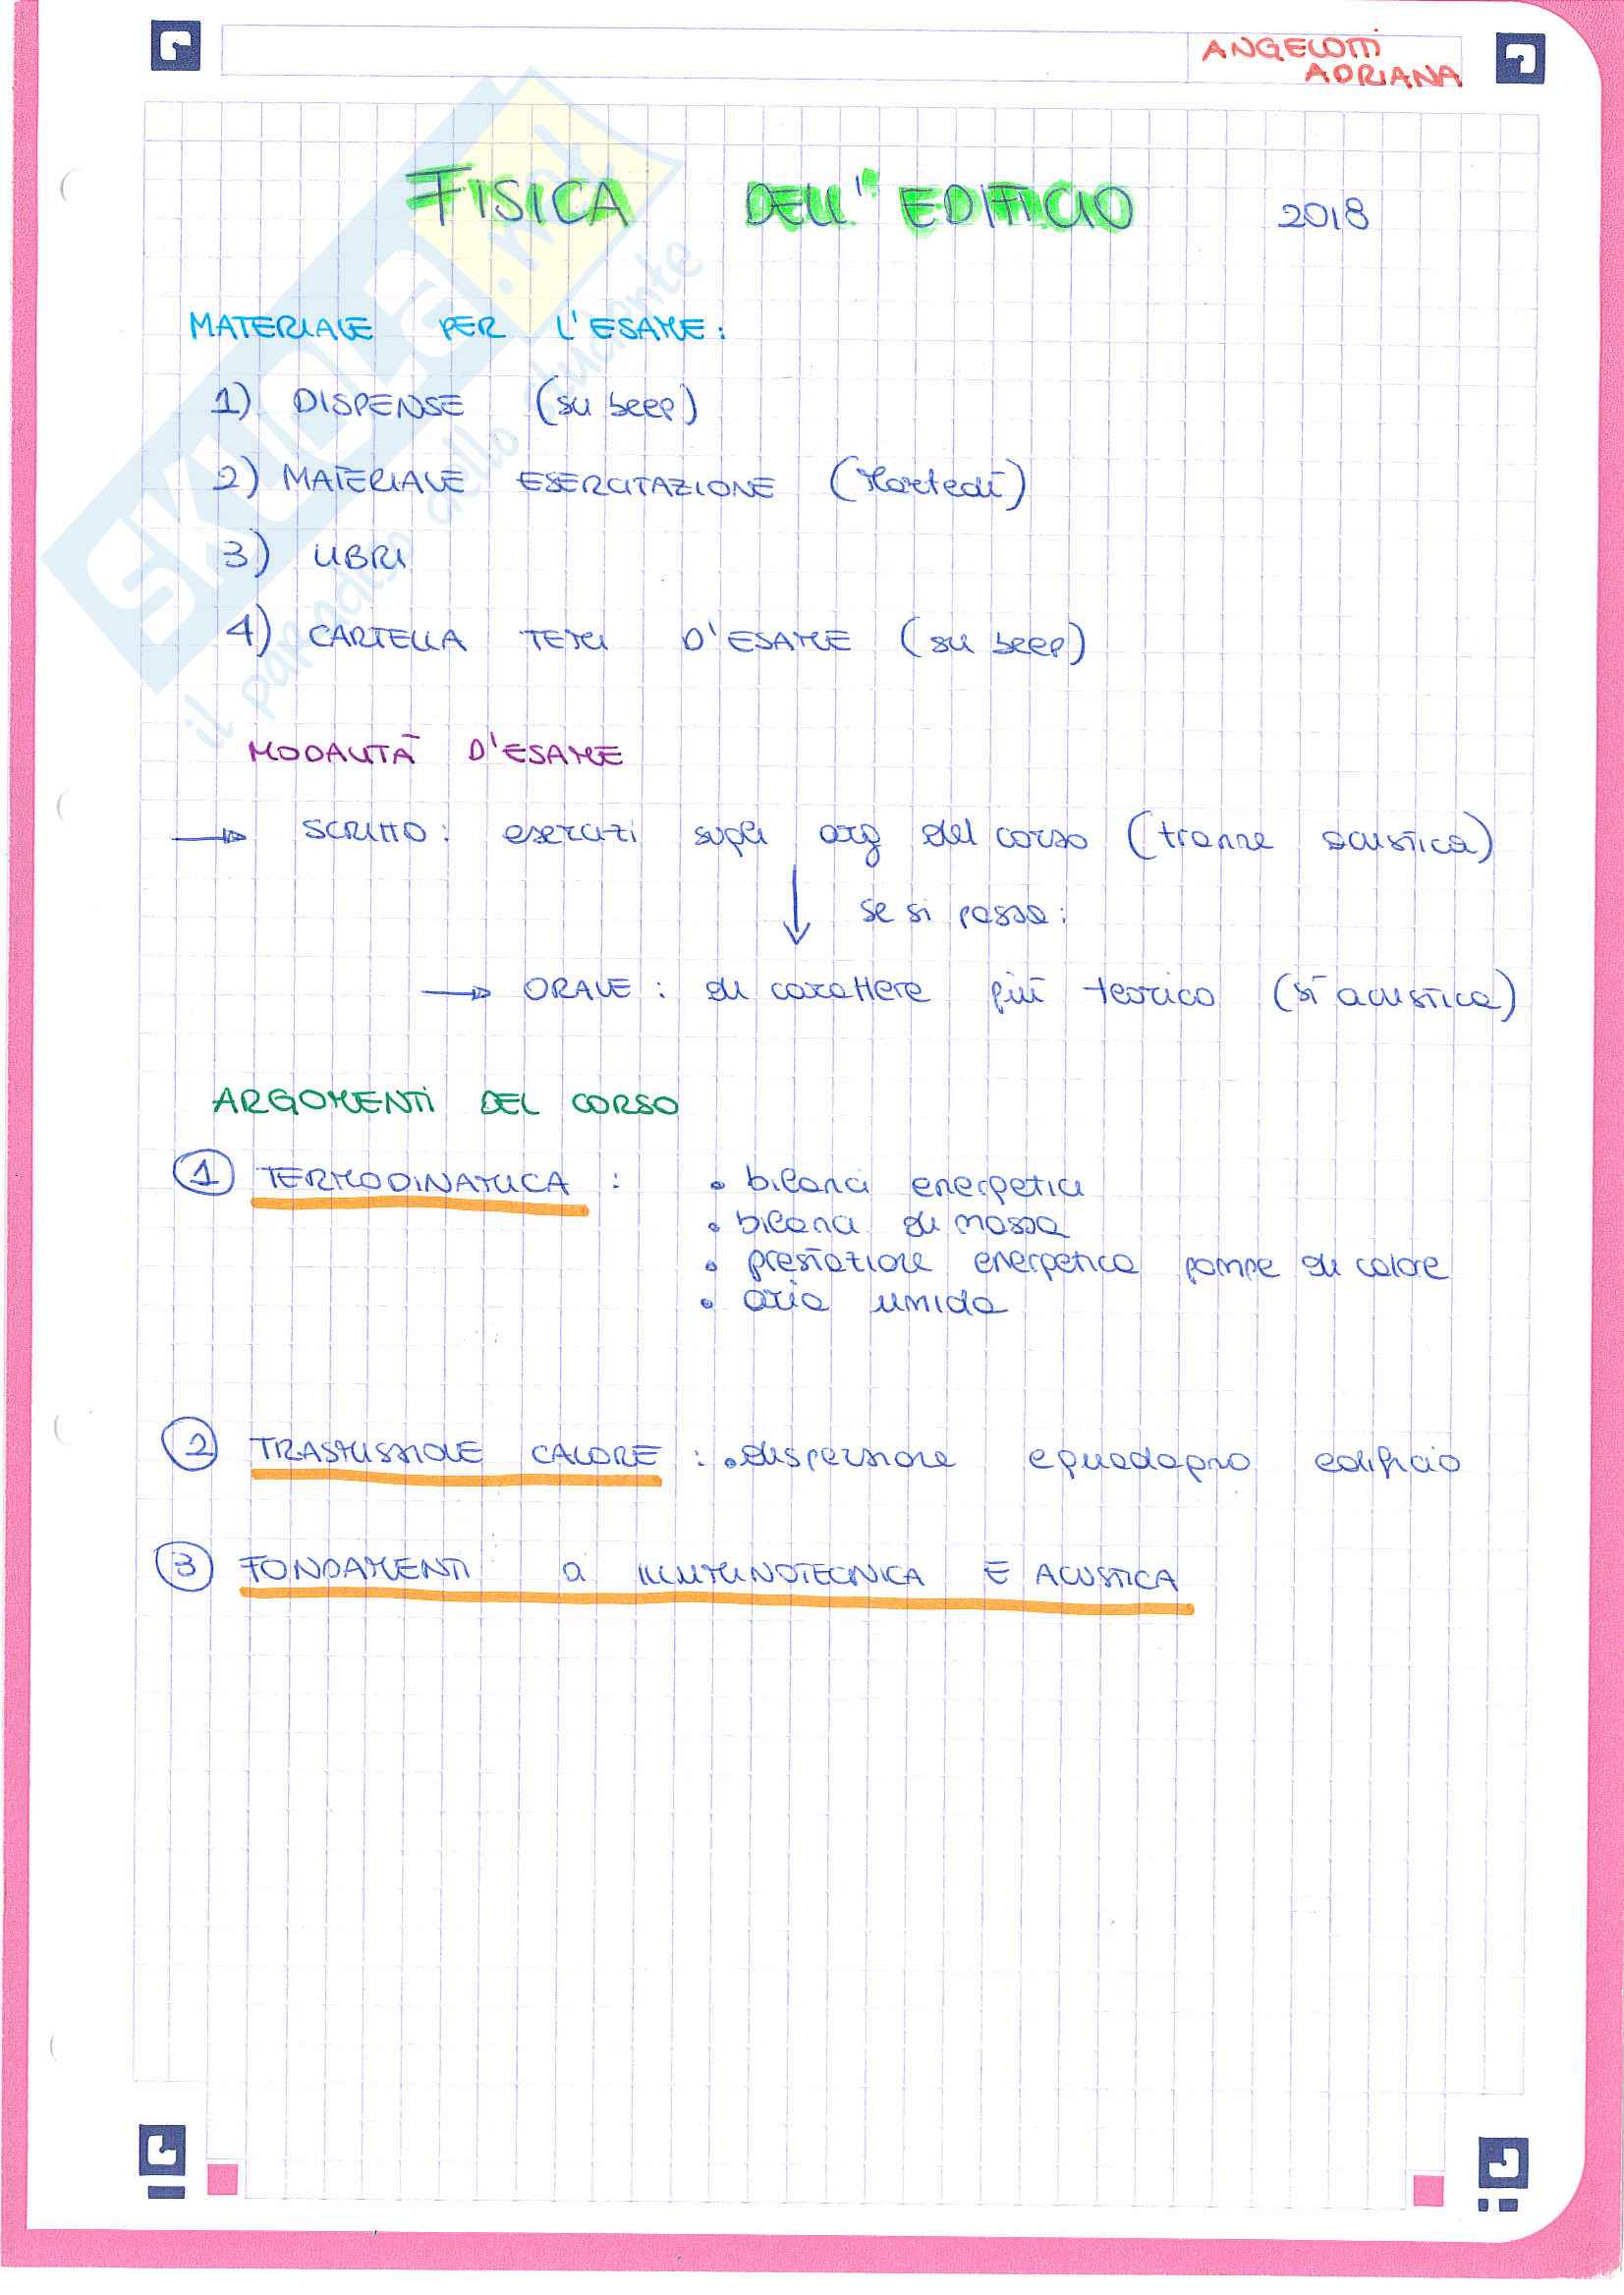 ANGELOTTI
ADRIANA
FISICA DELL'EDIFICIO 2018
MATERIALE PER L'ESAME:
1) DISPENSE (su beep)
2) MATERIALE ESERCITAZIONE (Martedì)
3) LIBRI
4) CARTELLA TEMI D'ESAME (su beep)
MODALITÀ D'ESAME
→ SCRITTO: esercizi sugli arg del corso (tranne acustica)
↓ se si passa:
→ ORALE: di carattere più teorico (sì acustica)
ARGOMENTI DEL CORSO
1 TERMODINAMICA: • bilanci energetici
• bilanci di massa
• prestazione energetica pompe di calore
• aria umida
2 TRASMISSIONE CALORE: • dispersione edificio
3 FONDAMENTI a ILLUMINOTECNICA E ACUSTICA
SKUOLA.net
il paradiso dello studente